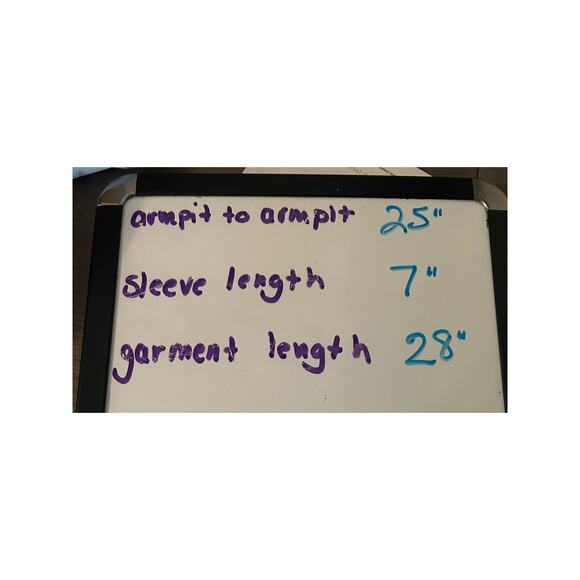 armpit to armpit 25"
sleeve length 7"
garment length 28"